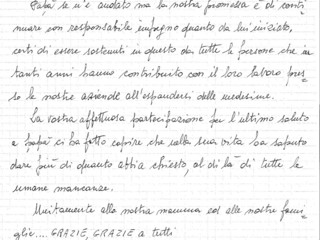 Papà se n'è andato ma la nostra promessa è di conti-
nuare con responsabile impegno quanto da lui iniziato,
certi di essere sostenuti in questo da tutte le persone che in
tanti anni hanno contribuito con il loro lavoro pres-
so le nostre aziende all'espandersi delle medesime.
La vostra affettuosa partecipazione per l'ultimo saluto
a papà ci ha fatto capire che nella sua vita ha saputo
dare più di quanto abbia chiesto, al di là di tutte le
umane mancanze.
Unitamente alla nostra mamma ed alle nostre fami-
glie.... GRAZIE, GRAZIE a tutti